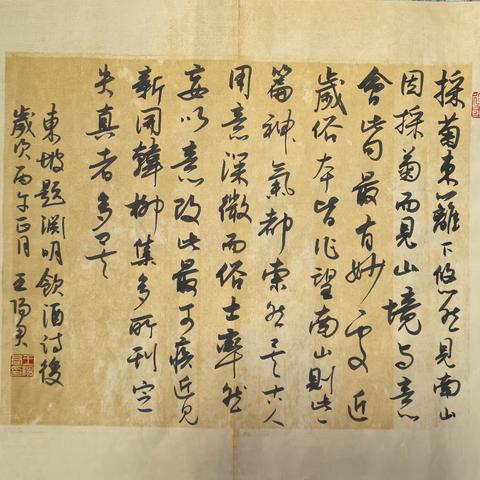 採菊東籬下悠然見南山
因採菊而見山境与意
會皆句最有妙處近
歲俗本皆作望南山則此一
篇神氣都索然矣古人
用意深微而俗士率然
妄以意改此最可疾近見
新開韓柳集多所刊定
失真者多矣
東坡題淵明飲酒詩後
歲次丙午正月王陽君